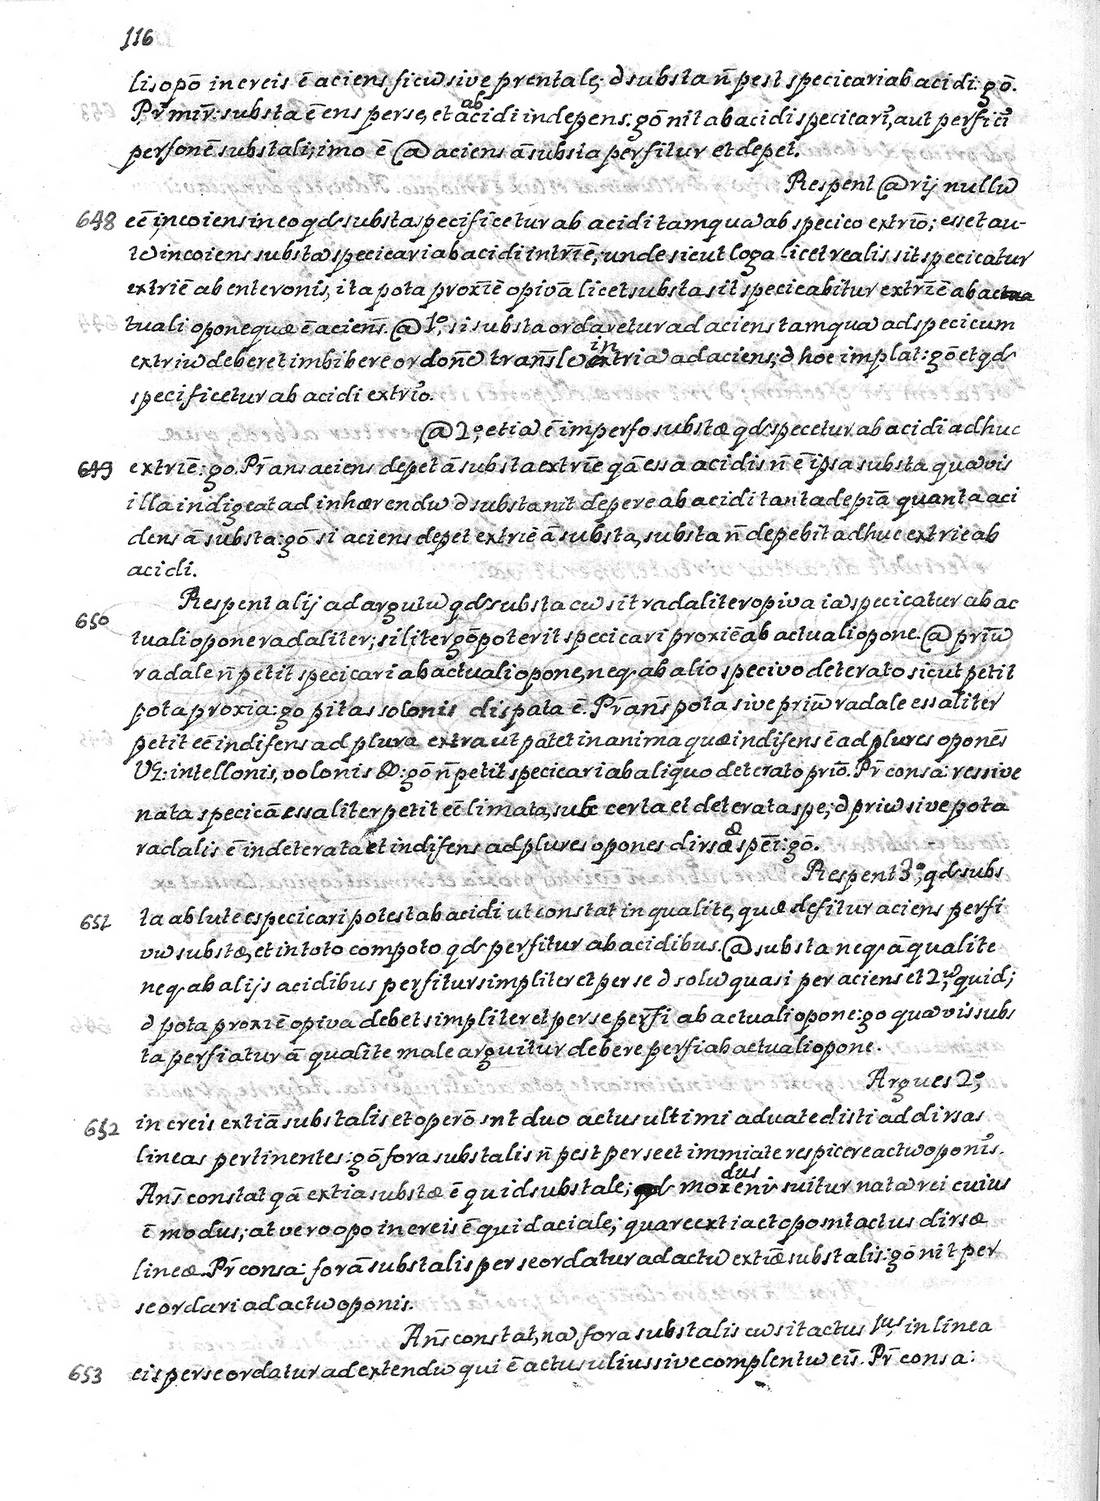 116
lis opō in creis ē aciens ficū sive prentale; ∂ substa n̄ pest specicari ab acidi: gō.
Pr̄ mir̄: substa ē ens per se, et ab acidi indepens: gō nit ab acidi specicari, aut perfici
per fonē substali; imo ē @ aciens ā substa perfitur et depet.
Respent @rij nullū
648 eē incoiens in eo qd substa specificetur ab acidi tamquā ab specico extrīo; esset au-
tē incoiens substā specicari ab acidi intrīē; unde sicut loga licet realis sit specicatur
extriē ab ente ronis, ita pota proxiē opivā licet substa sit specicabitur extrīē ab ac
tuali opone quæ ē aciens. @ 1º, si substa ordaretur ad aciens tamquā ad specicum
extriū deberet imbibere ordonē translē intriā ad aciens; ∂ hoc implat: gō et qd
specificetur ab acidi extrio.
@ 2º, etiā ē imperfo substæ qd specetur ab acidi adhuc
649 extriē: go. Pr̄ ans aciens depet ā substa extriē qā essa acidis n̄ ē ipsa substa quāvis
illa indigeat ad inhærendū ∂ substa nit depere ab acidi tanta depiā quanta aci
dens ā substa: gō si aciens depet extriē ā substa, substa n̄ depebit adhuc extriē ab
acidi.
Respent alij ad argutū qd substa cū sit radaliter opiva iā specicatur ab ac
650 tuali opone radaliter; siliter gō poterit specicari proxiē ab actuali opone. @ priū
radale n̄ petit specicari ab actuali opone, neq. ab alio specivo deterato sicut petit
pota proxia: go pitas solonis dispata ē. Pr̄ ans pota sive priū radale essaliter
petit eē indifens ad plura extra ut patet in anima quæ indifens ē ad plures opones
Vz: intellonis, volonis &: gō n̄ petit specicari ab aliquo deterato prio. Pr̄ consa: ressive
nata specicā essaliter petit eē limata, sub certa et deterata spe; ∂ priū sive pota
radalis ē indeterata et indifens ad plures opones dirsæ spēi: gō.
Respent 3º, qd subs
651 ta ablute specicari potest ab acidi ut constat in qualite, quæ defitur aciens perfi
vū substæ, et in toto compoto qd perfitur ab acidibus. @ substa neq. ā qualite
neq. ab alijs acidibus perfitur simpliter et per se ∂ solū quasi per aciens et 2ū quid;
∂ pota proxiē opiva debet simpliter et per se perfi ab actuali opone: go quāvis subs
ta perfiatur ā qualite male arguitur debere perfi ab actuali opone.
Argues 2º,
652 in creis extiā substalis et operō snt duo actus ultimi aduate disti ad dirsas
lineas pertinentes: gō fora substalis n̄ pest per se et immiate respicere actū oponis.
Ans constat qā extia substæ ē quid substale; modus eni suitur natā rei cuius
ē modus; at vero opo in creis ē quid aciale; quare extia et opo snt actus dirsæ
lineæ. Pr̄ consa: forā substalis per se ordatur ad actū extiæ substalis: gō nit per
se ordari ad actū oponis.
Ans constat, nā, fora substalis cū sit actus 1us, in linea
653 eis per se ordatur ad extendū qui ē actus ulius sive complentū eis. Pr̄ consa: